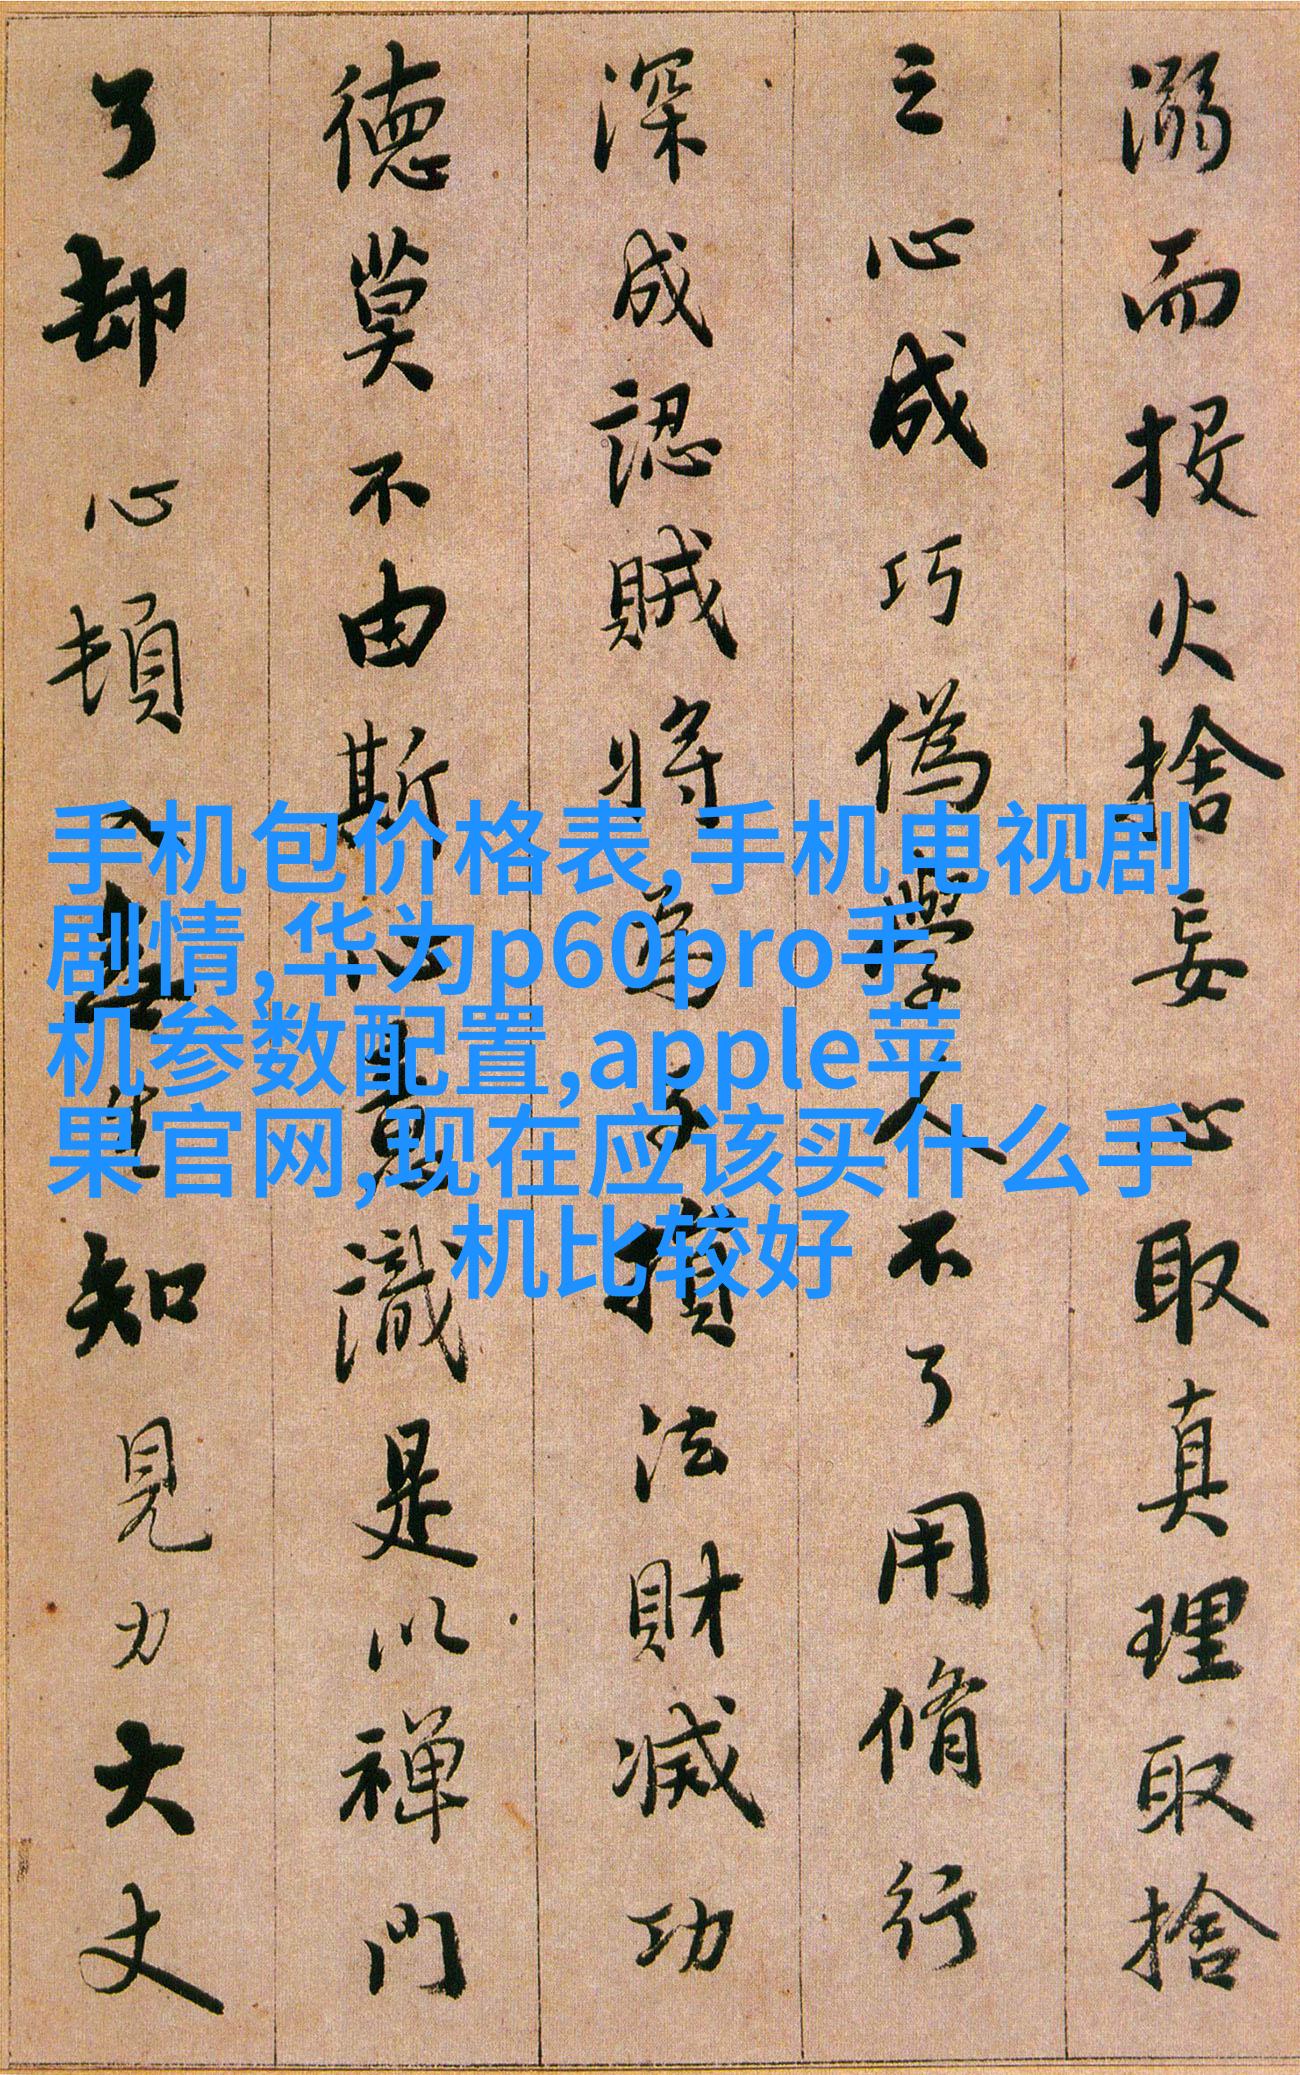 溺而投火捨妄心取真理取捨
之心成巧偽學人不了用脩行
深成認賊將為子損法財滅功
德莫不由斯心意識是以禪門
了却心頓入無生知見力大丈
手机包价格表,手机电视剧
剧情,华为p60pro手
机参数配置,apple苹
果官网,现在应该买什么手
机比较好